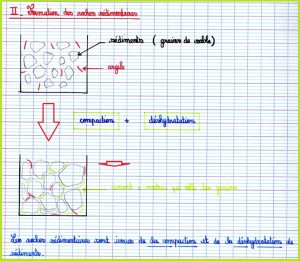 II _ Formation des roches sédimentaires
sédiments ( graines de sable)
argile
compaction + déshydratation
ciment = matrice qui relie les graines
Les roches sédimentaires sont issues de la compaction et de la déshydratation de
sédiments.